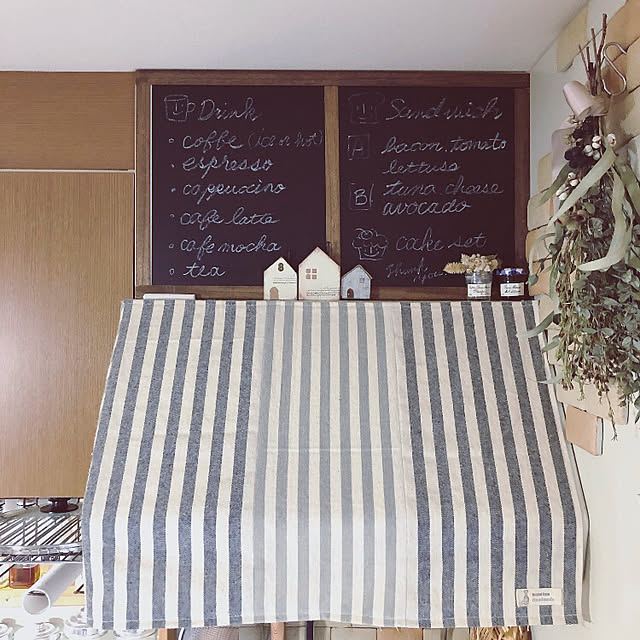 Drink
• coffe (ice or hot)
• espresso
• capeuccino
• cafe latte
• cafe mocha
• tea
Sandwich
A bacon. tomato
lettuss
B tuna cheese
avocado
cake set
Thank you